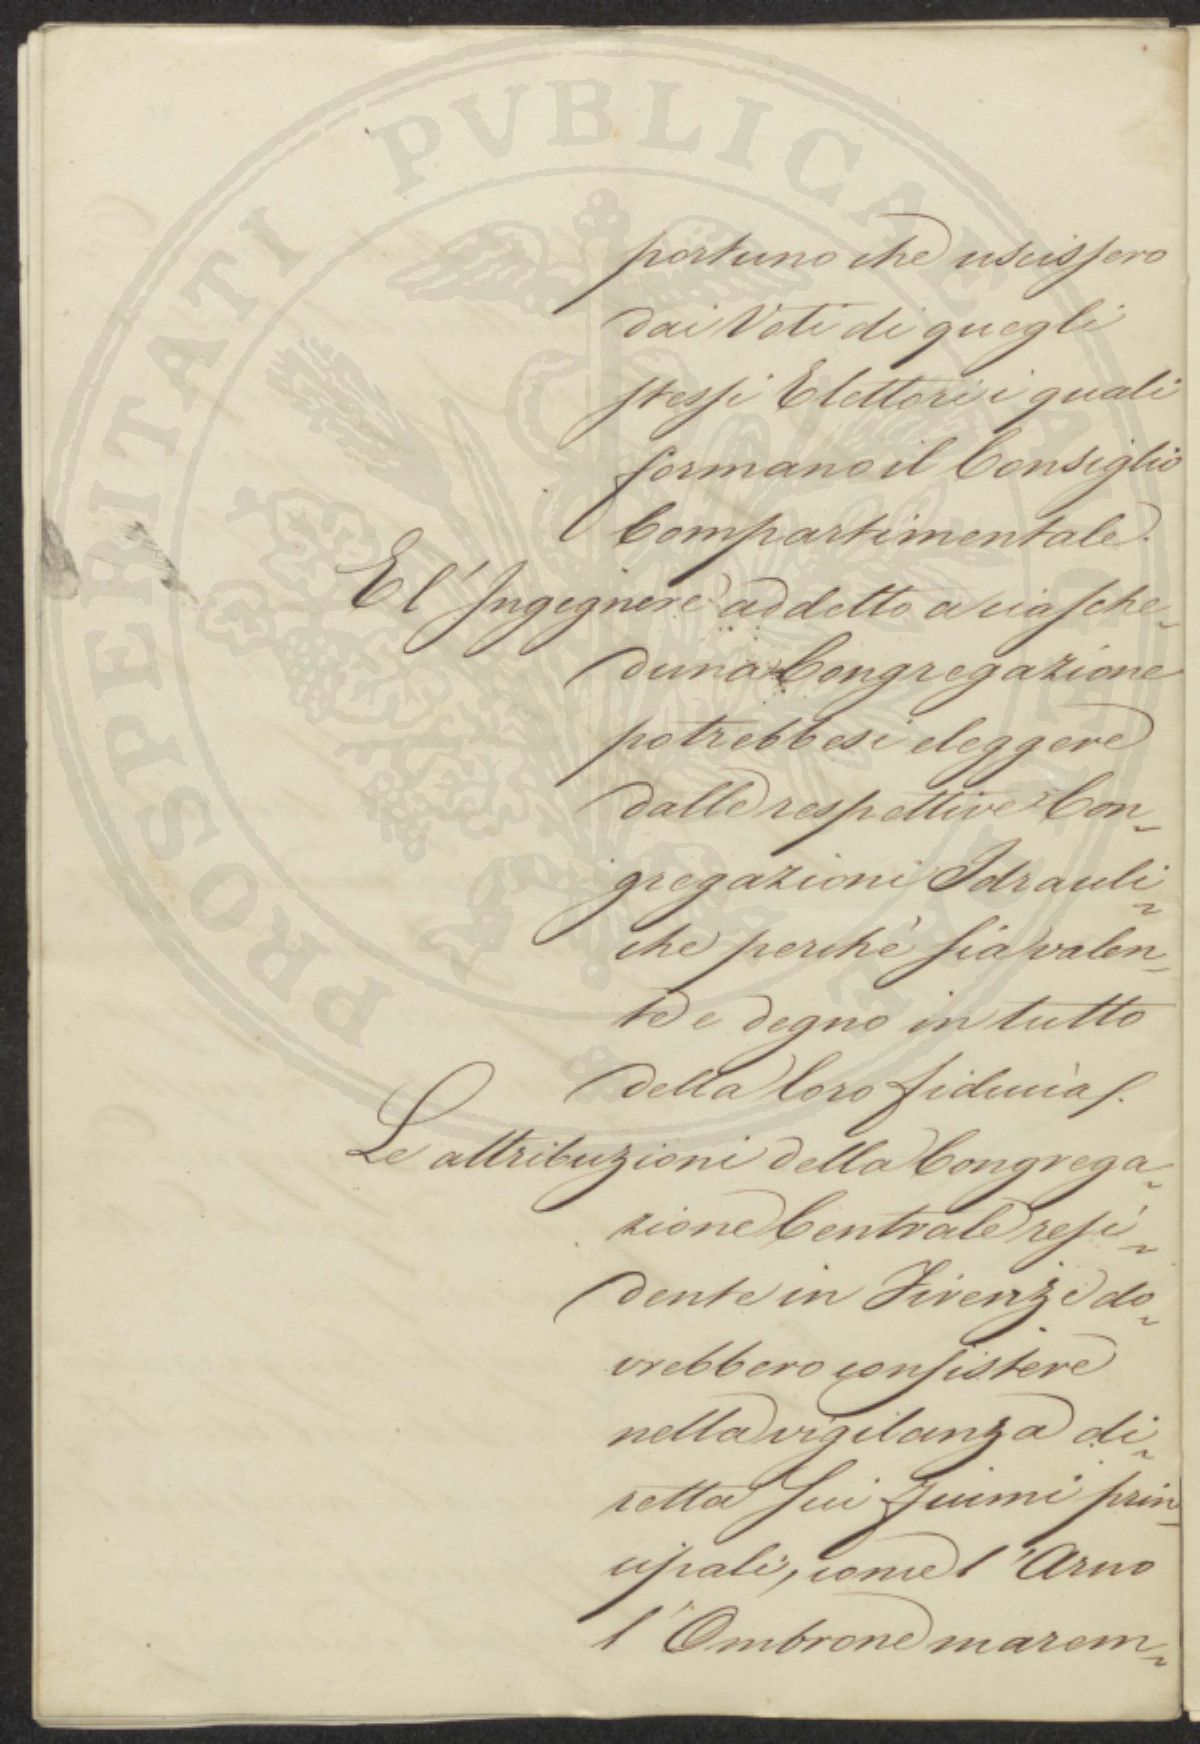 PROSPERITATI PVBLICAE AVGENDAE
portuno che uscissero
dai Voti di quegli
stessi Elettori i quali
formano il Consiglio
Compartimentale.
E l'Ingegnere addetto a ciasche-
duna Congregazione
potrebbesi eleggere
dalle respettive Con-
gregazioni Idrauli-
che perchè sia valen-
te e degno in tutto
della loro fiducia.
Le attribuzioni della Congrega-
zione Centrale resi-
dente in Firenze do-
vrebbero consistere
nella vigilanza di-
retta sui fiumi prin-
cipali, come l'Arno
l'Ombrone marem-